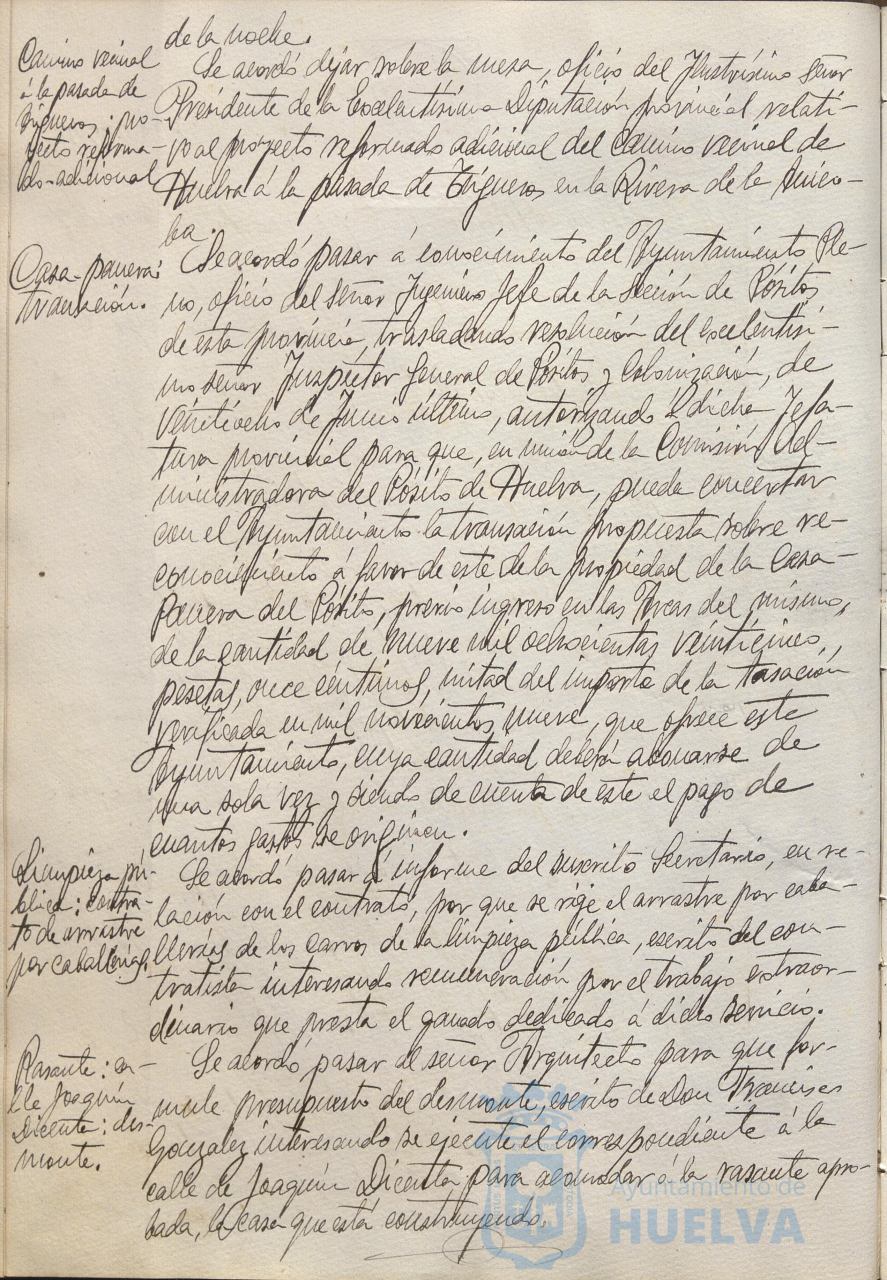 de la noche.
Camino vecinal
á la pasada de
Trigueros: pro-
yecto reforma-
do-adicional
Se acordó dejar sobre la mesa, oficio del Ilustrísimo Señor
Presidente de la Excelentísima Diputación provincial relati-
vo al proyecto reformado adicional del Camino vecinal de
Huelva á la pasada de Trigueros en la Rivera de la Anico-
ba.
Casa-panera:
transación.
Se acordó pasar á conocimiento del Ayuntamiento Ple-
no, oficio del Señor Ingeniero Jefe de la Sección de Pósitos
de esta provincia, trasladando resolución del excelentísi-
mo señor Inspector General de Pósitos y Colonización, de
veintiocho de Junio último, autorizando á dicha Jefa-
tura provincial para que, en unión de la Comisión Ad-
ministradora del Pósito de Huelva, pueda concertar
con el Ayuntamiento la transación propuesta sobre re-
conocimiento á favor de este de la propiedad de la Casa-
Panera del Pósito, previo ingreso en las Arcas del mismo,
de la cantidad de nueve mil ochocientas veinticinco,
pesetas, once céntimos, mitad del importe de la tasación
verificada en mil novecientos nueve, que ofrece este
Ayuntamiento, cuya cantidad deberá abonarse de
una sola vez y siendo de cuenta de este el pago de
cuantos gastos se originen.
Limpieza pú-
blica: contra-
to de arrastre
por caballerías.
Se acordó pasar á informe del suscrito Secretario, en re-
lación con el contrato, por que se rige el arrastre por caba-
llerías de los carros de la limpieza pública, escrito del con-
tratista interesando remuneración por el trabajo extraor-
dinario que presta el ganado dedicado á dicho servicio.
Rasante: ca-
lle Joaquín
Dicenta: des-
monte.
Se acordó pasar al señor Arquitecto para que for-
mule presupuesto del desmonte, escrito de Don Francisco
Gonzalez interesando se ejecute el correspondiente á la
calle de Joaquín Dicenta para acomodar á la rasante apro-
bada, la casa que está construyendo.
Ayuntamiento de
HUELVA